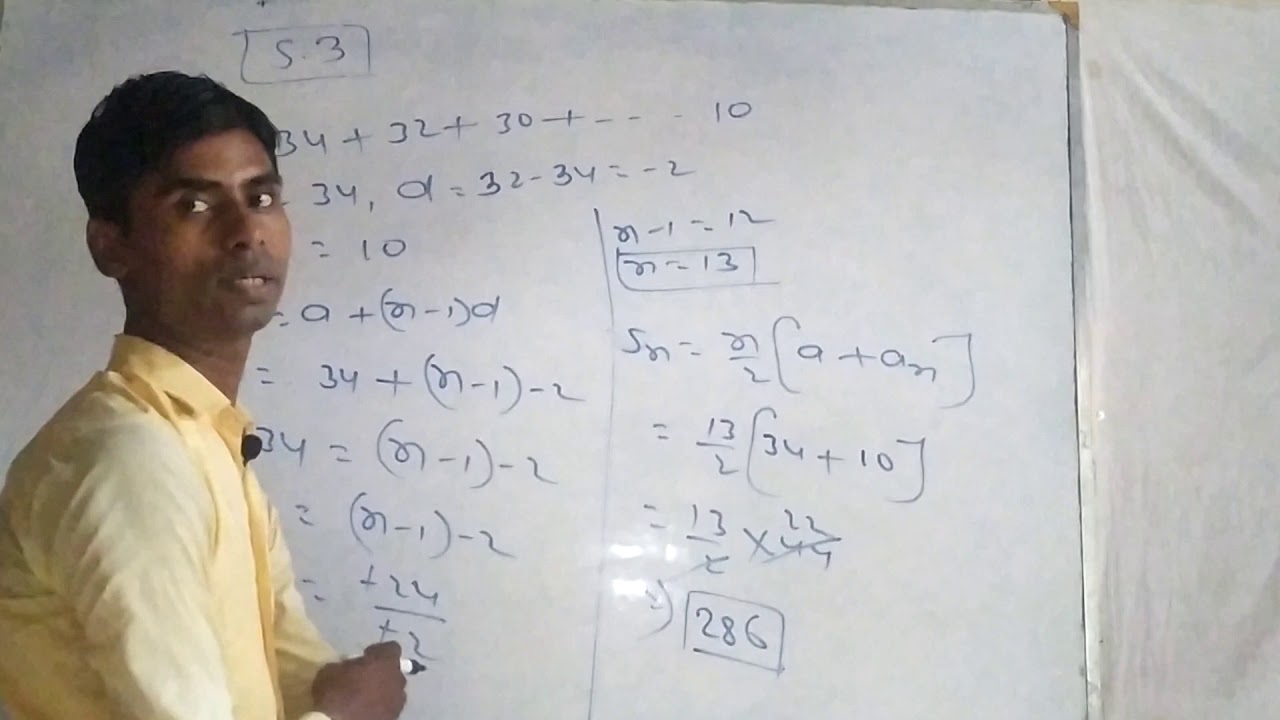 5.3
34 + 32 + 30 + - - - 10
34, d = 32 - 34 = -2
= 10
= a + (n-1)d
= 34 + (n-1)-2
34 = (n-1)-2
= (n-1)-2
= +24
+2
n-1 = 12
n = 13
Sn = n/2 [a + an]
= 13/2 [34 + 10]
= 13/2 × 44 22
=) 286